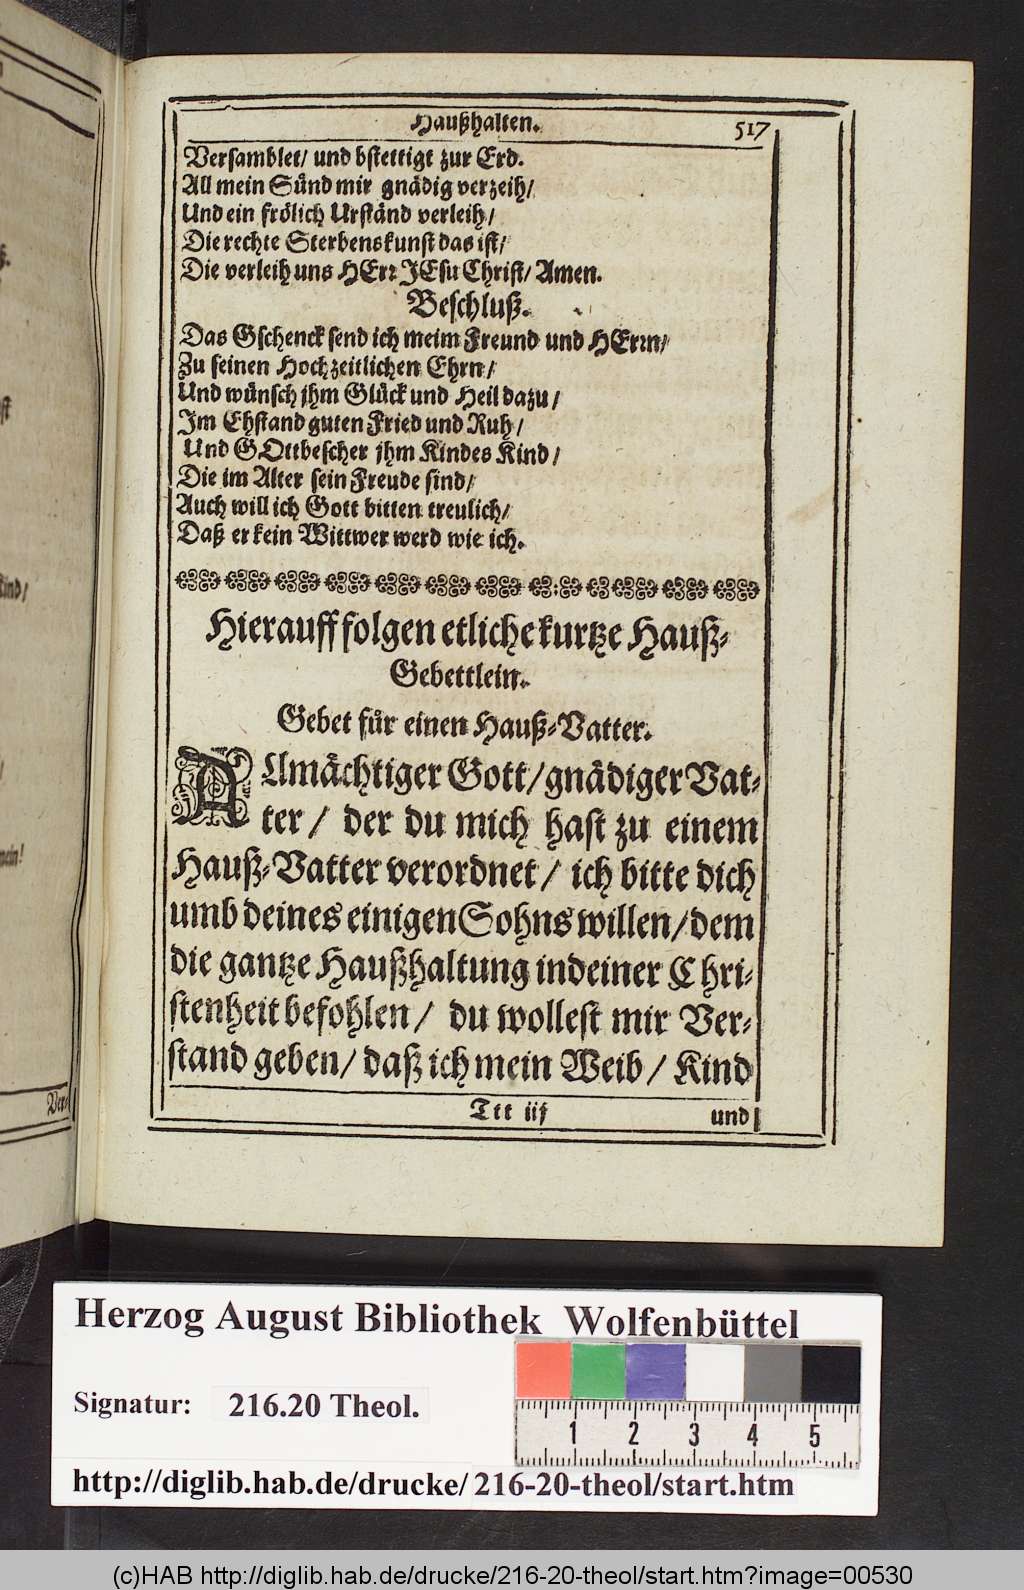 Haußhalten. 517
Versamblet/ und bstettigt zur Erd.
All mein Sünd mir gnädig verzeih/
Und ein frölich Urständ verleih/
Die rechte Sterbenskunst das ist/
Die verleih uns HErr JEsu Christ/ Amen.
Beschluß.
Das Gschenck send ich meim Freund und HErrn/
Zu seinen Hochzeitlichen Ehrn/
Und wünsch jhm Glück und Heil dazu/
Im Ehstand guten Fried und Ruh/
Und GOtt bescher jhm Kindes Kind/
Die im Alter sein Freude sind/
Auch will ich Gott bitten treulich/
Daß er kein Wittwer werd wie ich.
Hierauff folgen etliche kurtze Hauß-
Gebettlein.
Gebet für einen Hauß-Vatter.
Allmächtiger Gott/ gnädiger Vat-
ter/ der du mich hast zu einem
Hauß-Vatter verordnet/ ich bitte dich
umb deines einigen Sohns willen/ dem
die gantze Haußhaltung in deiner Chri-
stenheit befohlen/ du wollest mir Ver-
stand geben/ daß ich mein Weib/ Kind
Ttt iij und
Herzog August Bibliothek Wolfenbüttel
Signatur: 216.20 Theol.
1 2 3 4 5
http://diglib.hab.de/drucke/216-20-theol/start.htm
(c)HAB http://diglib.hab.de/drucke/216-20-theol/start.htm?image=00530